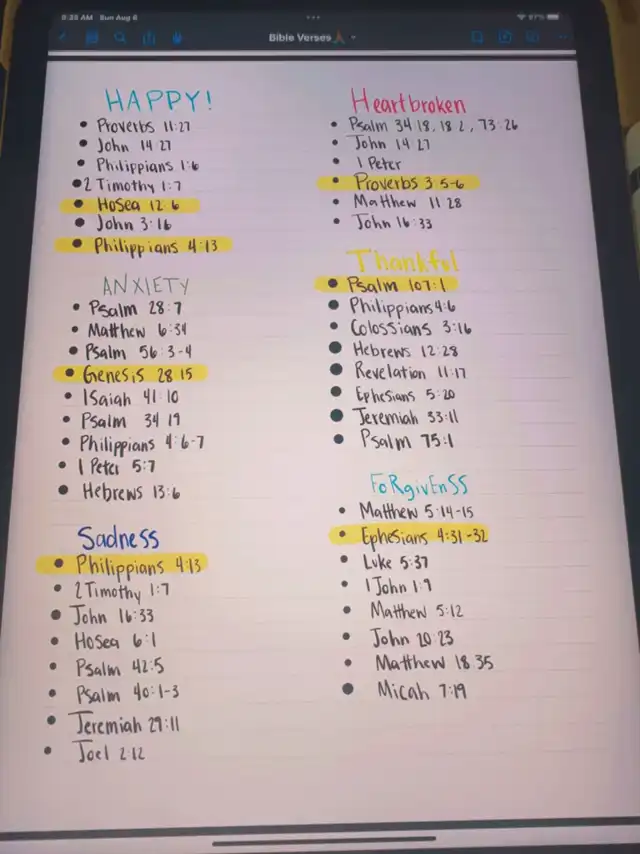 9:35 AM Sun Aug 6
97%
Bible Verses🙏
HAPPY!
• Proverbs 11:27
• John 14:27
• Philippians 1:6
• 2 Timothy 1:7
• Hosea 12:6
• John 3:16
• Philippians 4:13
ANXIETY
• Psalm 28:7
• Matthew 6:34
• Psalm 56:3-4
• Genesis 28:15
• Isaiah 41:10
• Psalm 34 19
• Philippians 4:6-7
• 1 Peter 5:7
• Hebrews 13:6
Sadness
• Philippians 4:13
• 2 Timothy 1:7
• John 16:33
• Hosea 6:1
• Psalm 42:5
• Psalm 40:1-3
• Jeremiah 29:11
• Joel 2:12
Heartbroken
• Psalm 34 18, 18 2, 73:26
• John 14:27
• 1 Peter
• Proverbs 3:5-6
• Matthew 11 28
• John 16:33
Thankful
• Psalm 107:1
• Philippians 4:6
• Colossians 3:16
• Hebrews 12:28
• Revelation 11:17
• Ephesians 5:20
• Jeremiah 33:11
• Psalm 75:1
FoRgivEnSS
• Matthew 5:14-15
• Ephesians 4:31-32
• Luke 5:37
• 1 John 1:9
• Matthew 5:12
• John 20 23
• Matthew 18 35
• Micah 7:19